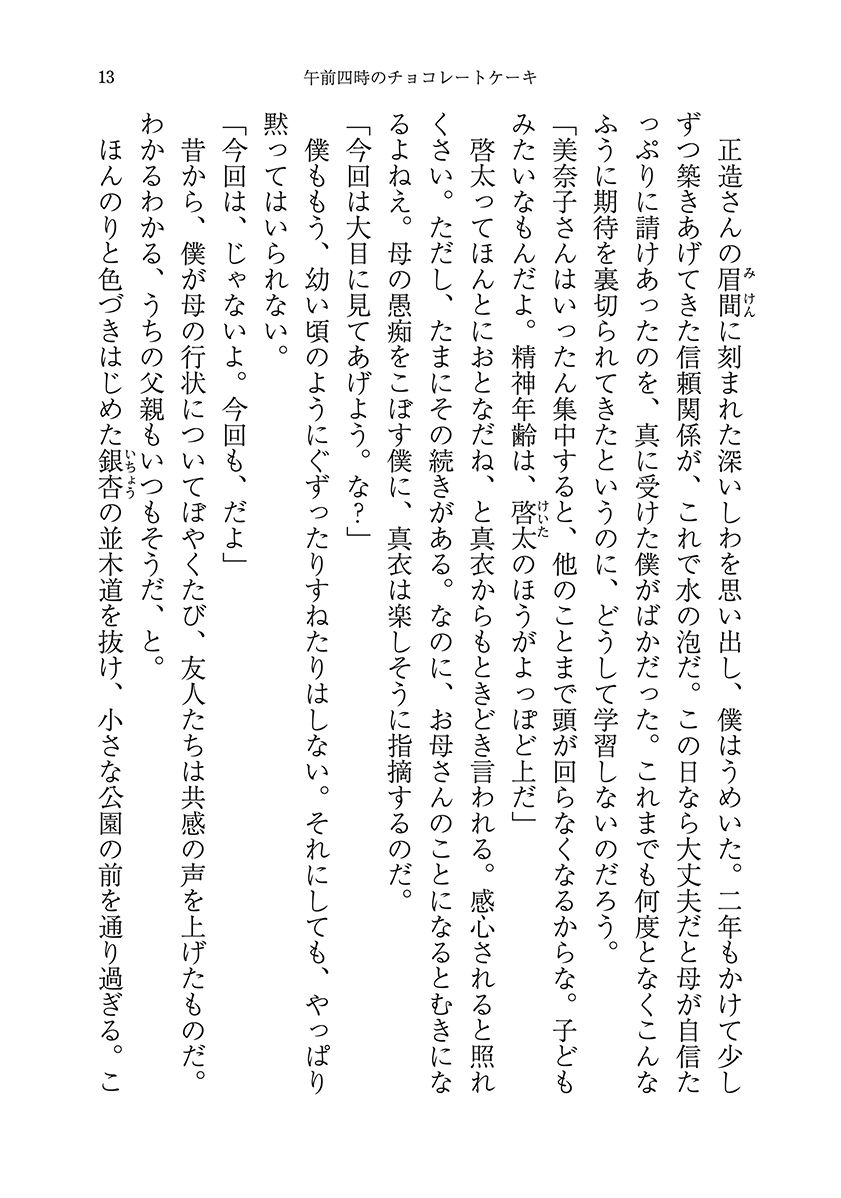 13
午前四時のチョコレートケーキ
正造さんの眉間に刻まれた深いしわを思い出し、僕はうめいた。二年もかけて少し
ずつ築きあげてきた信頼関係が、これで水の泡だ。この日なら大丈夫だと母が自信た
っぷりに請けあったのを、真に受けた僕がばかだった。これまでも何度となくこんな
ふうに期待を裏切られてきたというのに、どうして学習しないのだろう。
「美奈子さんはいったん集中すると、他のことまで頭が回らなくなるからな。子ども
みたいなもんだよ。精神年齢は、啓太のほうがよっぽど上だ」
啓太ってほんとにおとなだね、と真衣からもときどき言われる。感心されると照れ
くさい。ただし、たまにその続きがある。なのに、お母さんのことになるとむきにな
るよねえ。母の愚痴をこぼす僕に、真衣は楽しそうに指摘するのだ。
「今回は大目に見てあげよう。な?」
僕ももう、幼い頃のようにぐずったりすねたりはしない。それにしても、やっぱり
黙ってはいられない。
「今回は、じゃないよ。今回も、だよ」
昔から、僕が母の行状についてぼやくたび、友人たちは共感の声を上げたものだ。
わかるわかる、うちの父親もいつもそうだ、と。
ほんのりと色づきはじめた銀杏の並木道を抜け、小さな公園の前を通り過ぎる。こ
みけん
けいた
いちょう